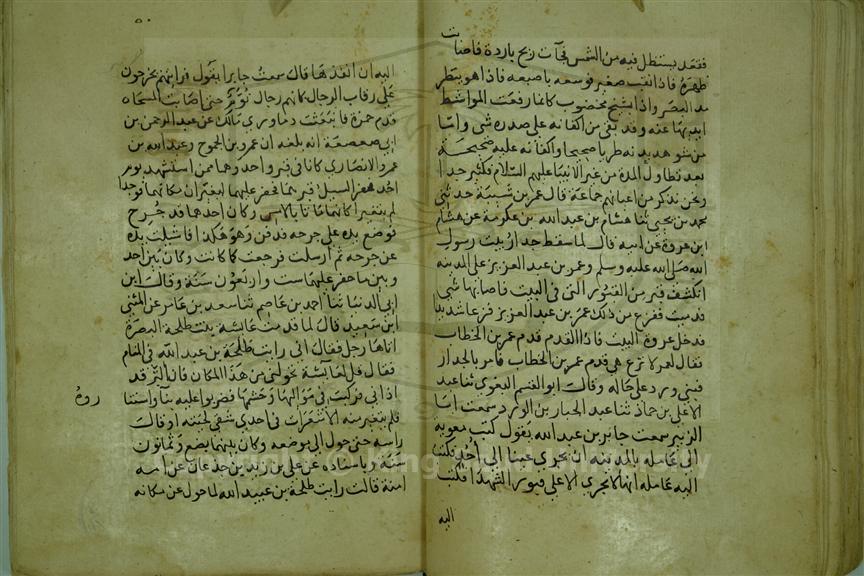 فقعد يستظل فيه من الشمس فجآت ريح باردة فاصابت
ظهره فاذا ثقب صغير فوسعه باصبعه فاذا هو ينظر
مد البصر واذا بشيخ مخضوب كانما رفعت المواشط
ايديها عنه وقد بقي من اكفانه على صدره شي واما
من هو هديد نه طريا صحيحا واكفانه عليه صحيحة
بعد تطاول المدة من غير الانبيا عليهم السلام فكثير جدا
ونحن نذكر من اعيانهم جماعة قال عمر بن شبة حدثنى
محمد بن يحيى ثنا هشام بن عبد الله بن عكرمة عن هشام
ابن عروة عن ابيه قال لما سقط جدار بيت رسول
الله صلى الله عليه وسلم وعمر بن عبد العزيز على المدينه
انكشف قبر من القبور التى فى البيت فاصابها شى
قدميت ففزع من ذلك عمر بن عبد العزيز فزعا شديدا
فدخل عروة البيت فاذا القدم قدم عمر بن الخطاب
فقال لعمر لا ترع هي قدم عمر بن الخطاب فامر بالجدار
فبنى ورد على حاله وقال ابو القسم البغوي ثنا عبد
الاعلى بن حماد ثنا عبد الجبار بن الورد سمعت ابا
الزبير سمعت جابر بن عبد الله يقول كتب معويه
الى عامله بالمدينه ان يجري عينا الى احد فكتب
اليه عامله انها لا تجري الا على قبور الشهدا فكتب
اليه
اليه ان انفذها قال سمعت جابرا يقول فرايتهم يخرجون
على رقاب الرجال كانهم رجال نوم حتى اصابت المسحاه
قدم حمزة فانبعثت دما وروي مالك عن عبد الرحمن بن
ابى صعصعة انه بلغه ان عمرو بن الجموح وعبد الله بن
عمرو الانصاري كانا فى قبر واحد وهما ممن استشهد يوم
احد فحفر السيل قبرهما فحفر عليهما ليغيرا من مكانهما فوجدا
لم يتغيرا كانما ماتا بالامس وكان احدهما قد جرح
فوضع يده على جرحه فدفن وهو كذلك فاميطت يده
عن جرحه ثم ارسلت فرجعت كما كانت وكان بين احد
وبين ما حفر عليهما ست واربعون سنة وقال ابن
ابي الدنيا ثنا احمد بن عاصم ثنا سعد بن عامر عن المثنى
ابن سعيد قال لما قدمت عائشة بنت طلحة البصرة
اتاها رجل فقال انى رايت طلحة بن عبد الله فى المنام
فقال قل لعائشة تحولنى من هذا المكان فان النز قد
اذانى فركبت فى مواليها وحشمها فضربوا عليه بناء واستثا
روه
فلم يتغير منه الا شعرات فى احدى شقى لحيته او قال
راسه حتى حول الى موضعه وكان بينهما بضع وثمانون
سنة وباسناده عن على بن زيد بن جدعان عن امه
امنة قالت رايت طلحة بن عبيد الله لما حول عن مكانه